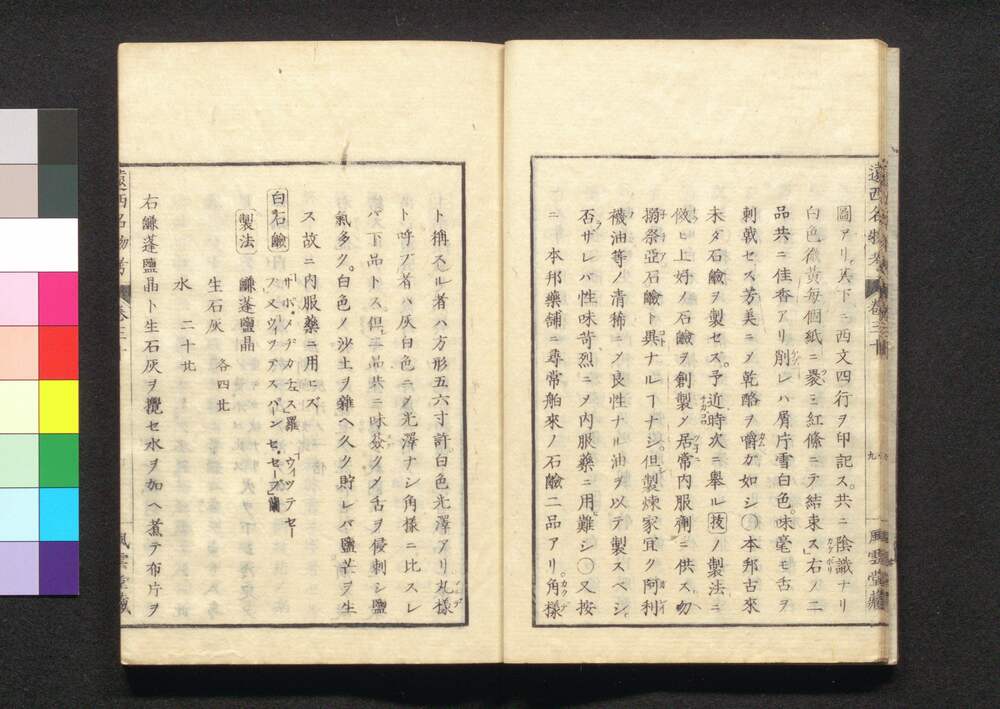 圖アリ其下ニ西文四行ヲ印記ス。共ニ陰識ナリ
白色微黄毎個紙ニ褁ミ紅絛ニテ結束ス」右ノ二
品共ニ佳香アリ削レハ屑片雪白色。味毫モ舌ヲ
刺戟セス芳美ニ〆乾酪ヲ嚼ガ如シ〇本邦古來
未ダ石鹼ヲ製セス。予近時次ニ舉ル技ノ製法ニ
倣ヒ上好ノ石鹼ヲ創製〆居常内服劑ニ供ス勿
搦祭亞石鹼ト異ナルヿナシ。但製煉家宜ク阿利
襪油等ノ清稀ニ〆良性ナル油ヲ以テ製スベシ
否ザレバ性味苛烈ニ〆内服藥ニ用難シ〇又按
ニ本邦藥舗ニ尋常舶來ノ石鹼二品アリ角樣
遠西名物考
卷三十
九
風雲堂藏
ト稱スル者ハ方形五六寸許。白色光澤アリ丸樣
ト呼ブ者ハ灰白色ニ〆光澤ナシ角樣ニ比スレ
バ下品トス但二品共ニ味鹼ク〆舌ヲ侵刺シ鹽
氣多ク。白色ノ沙土ヲ雜ヘ久ク貯レバ鹽芒ヲ生
ス故ニ内服藥ニ用ヒズ
白石鹼
「サポ・メデカ左ス」羅「ウィッテセー
プ」又「ウィッテスパーンセ・セープ」蘭
製法
鎌蓬鹽晶
生石灰
各四𠦄
水 二十𠦄
右鎌蓬鹽晶ト生石灰ヲ攪セ水ヲ加ヘ煮テ布片ヲ
遠西名物考
卷三十
風雲堂藏